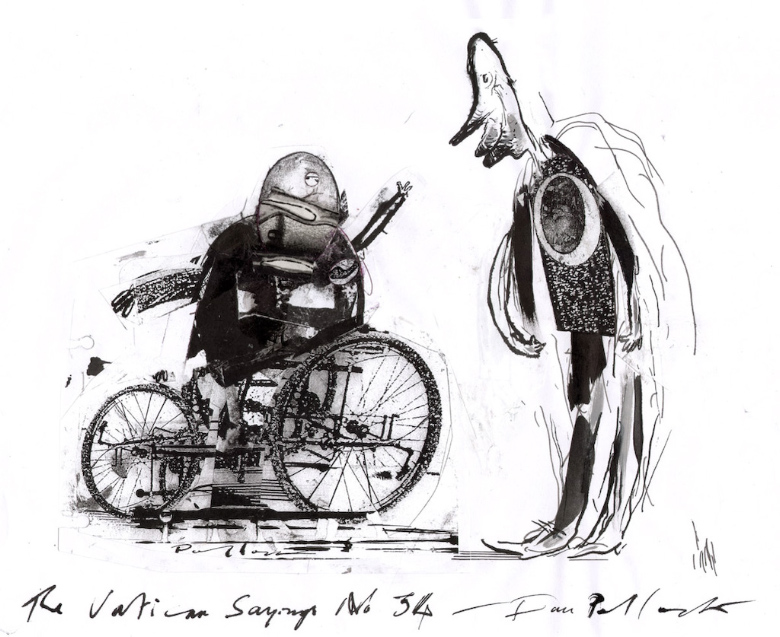 The Vatican Sayings No 34 – Ian Pollock